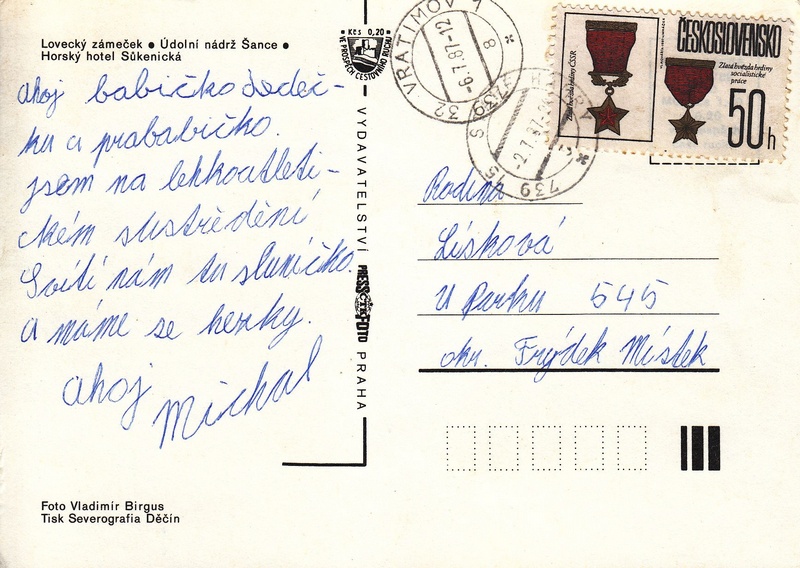 Lovecký zámeček • Údolní nádrž Šance •
Horský hotel Sůkenická
Ahoj babičko dědeč-
ku a prababičko.
jsem na lehkoatleti-
ckém sustrědění
Svítí nám tu sluníčko.
a máme se hezky.
ahoj
Michal
Foto Vladimír Birgus
Tisk Severografia Děčín
Kčs 0,20
VE PROSPĚCH CESTOVNÍHO RUCHU
VYDAVATELSTVÍ PRESSFOTO PRAHA
ČTK
VRATIMOV 1
-6.7.87-12
739 32
-2.7.87
739 15
ČESKOSLOVENSKO
Zlatá hvězda hrdiny ČSSR
Zlatá hvězda hrdiny
socialistické
práce
50h
Rodina
Lísková
U Parku 545
okr. Frýdek Místek